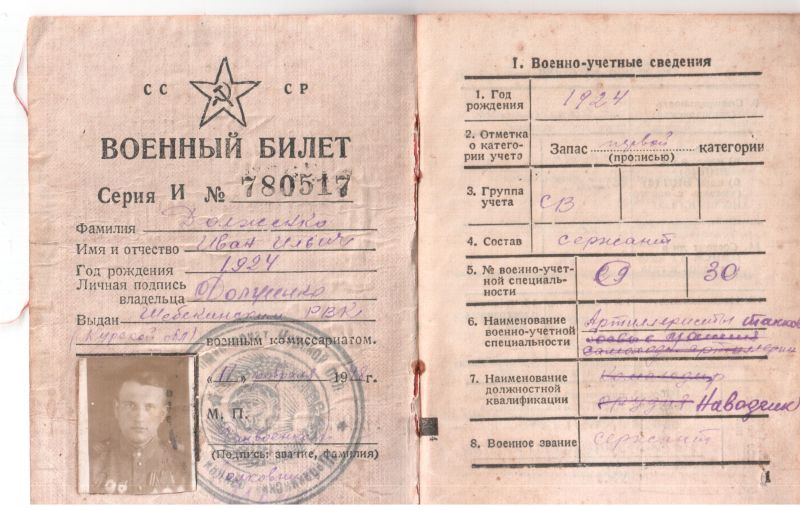 СС СР
ВОЕННЫЙ БИЛЕТ
Серия И № 780517
Фамилия Долженко
Имя и отчество Иван Ильич
Год рождения 1924
Личная подпись
владельца Долженко
Выдан Шебекинским РВК
Курской обл. военным комиссариатом.
"11" февраля 194 г.
М. П.
Райвоенком
(Подпись: звание, фамилия)
I. Военно-учетные сведения
1. Год
рождения 1924
2. Отметка
о катего-
рии учета Запас первой категории
(прописью)
3. Группа
учета СВ
4. Состав сержант
5. № военно-учет-
ной специаль-
ности 30
6. Наименование
военно-учетной
специальности Артиллеристы танков
7. Наименование
должностной
квалификации Командир орудия Наводчик
8. Военное звание сержант
1